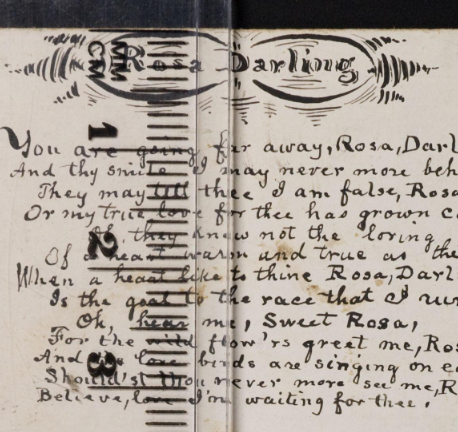 Rosa Darling
You are going far away, Rosa, Darl
And thy smile I may never more beh
They may tell thee I am false, Rosa
Or my true love for thee has grown co
Oh they know not the loving
Of a heart warm and true as the
When a heart like to thine Rosa, Darl
Is the goal to the race that I run
Oh, hear me, Sweet Rosa,
For the wild flow'rs greet me, Ros
And love birds are singing on ea
Should'st thou never more see me, R
Believe, love I'm waiting for thee.
CM
MM
1
2
3